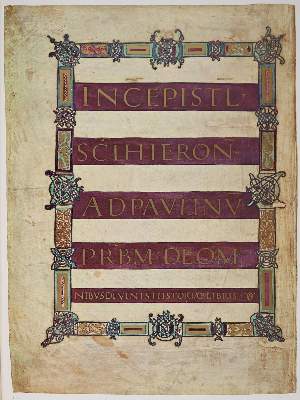 INC EPISTL
SCI HIERON
AD PAULINU
PRBM DE OM
NIBUS DIVINIS HISTORIAE LIBRIS